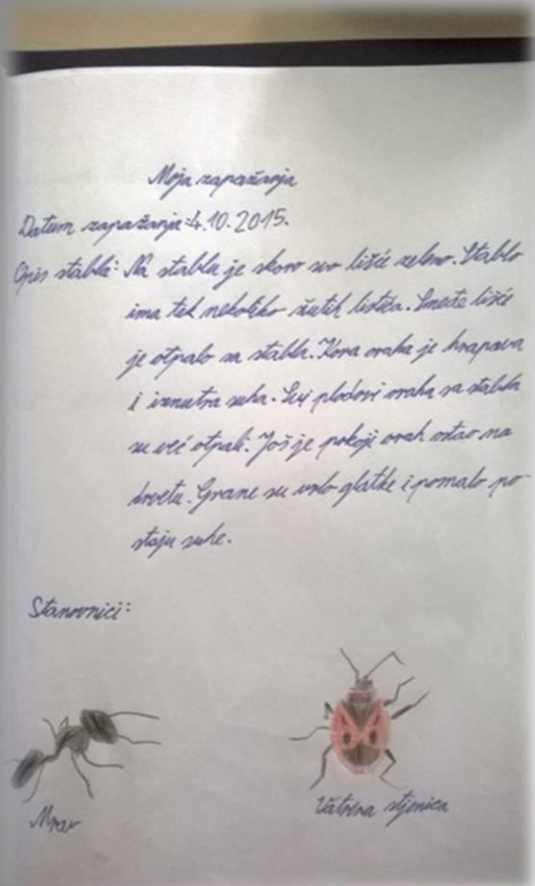 Moja zapažanja
Datum zapažanja: 4.10.2015.
Opis stabla: Na stablu je skoro svo lišće zeleno. Stablo
ima tek nekoliko žutih listića. Smeđe lišće
je otpalo sa stabla. Kora oraha je hrapava
i iznutra suha. Svi plodovi oraha sa stabla
su već otpali. Još je pokoji orah ostao na
drvetu. Grane su vrlo glatke i pomalo po-
staju suhe.
Stanovnici:
Mrav
Vatrena stjenica